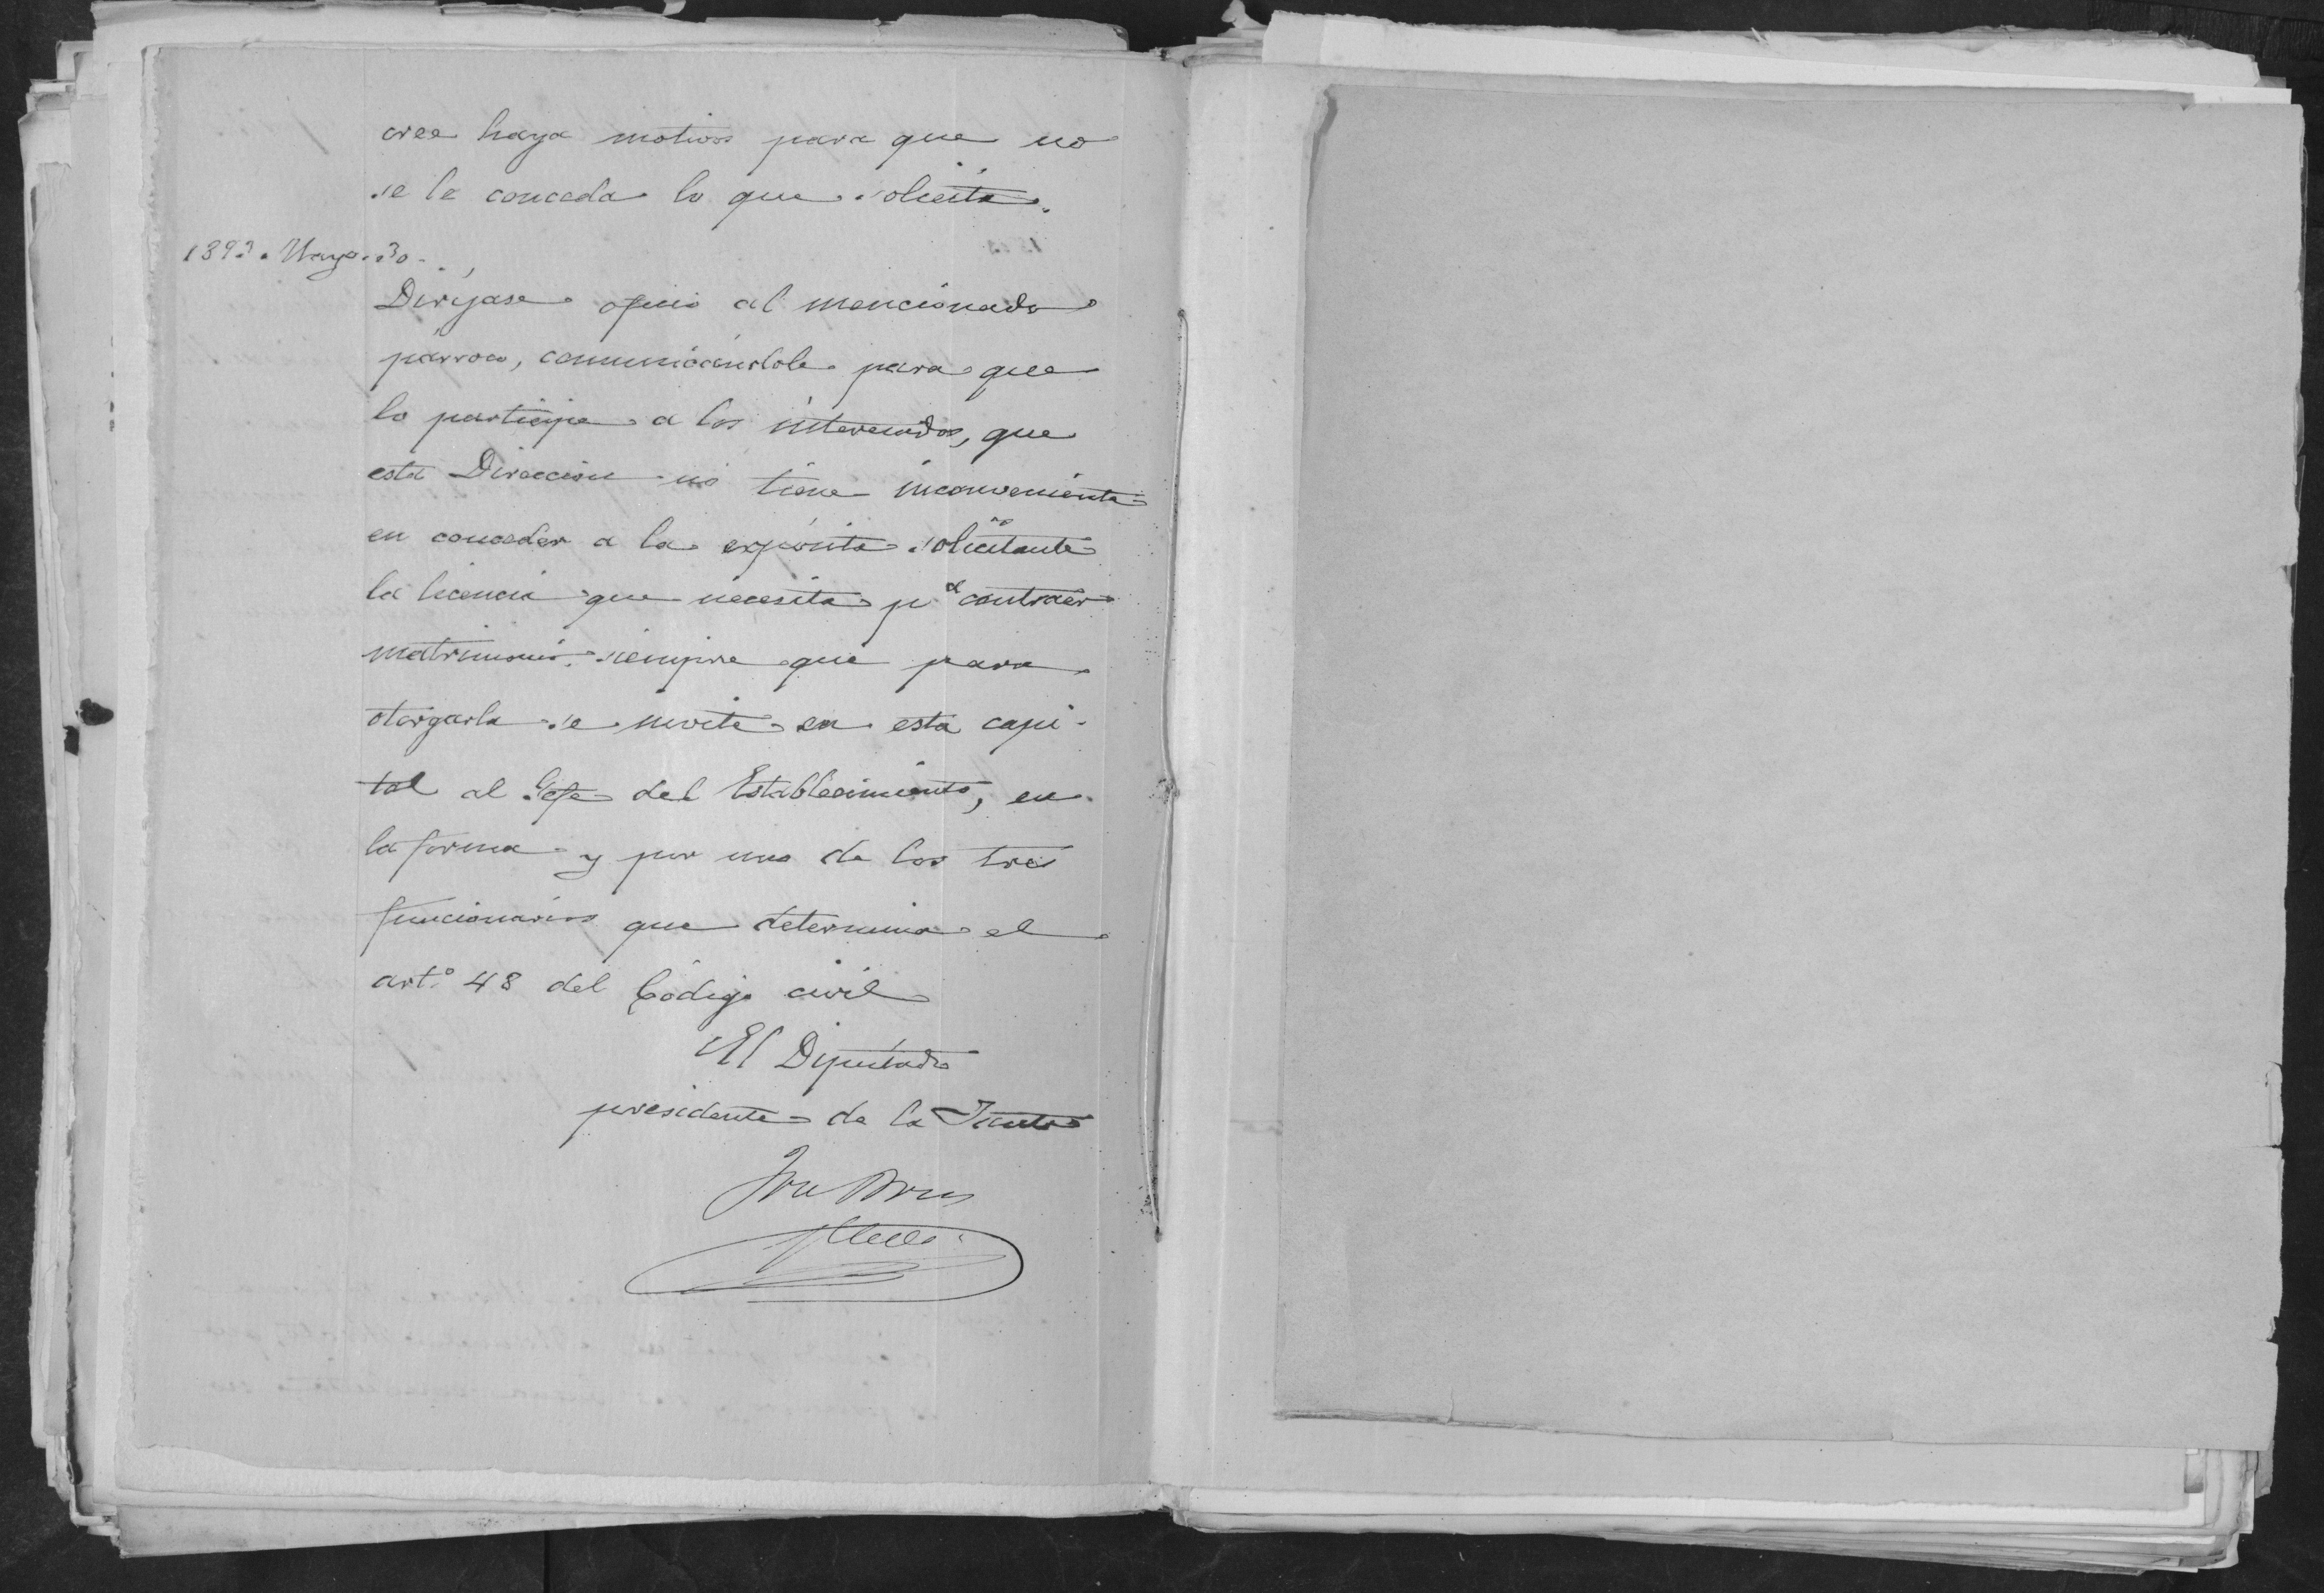 cree haya motivos para que no
se le conceda lo que solicita.
1893. Mayo. 30.
Dirijase oficio al mencionado
párroco, comunicándole para que
lo participe a los interesados, que
esta Direccion no tiene inconveniente
en conceder a la expósita solicitante
la licencia que necesita pª contraer
matrimonio siempre que para
otorgarla se invite en esta capi-
tal al Gefe del Establecimiento, en
la forma y por uno de los tres
funcionarios que determina el
artº 48 del Código civil
El Diputado
presidente de la Junta